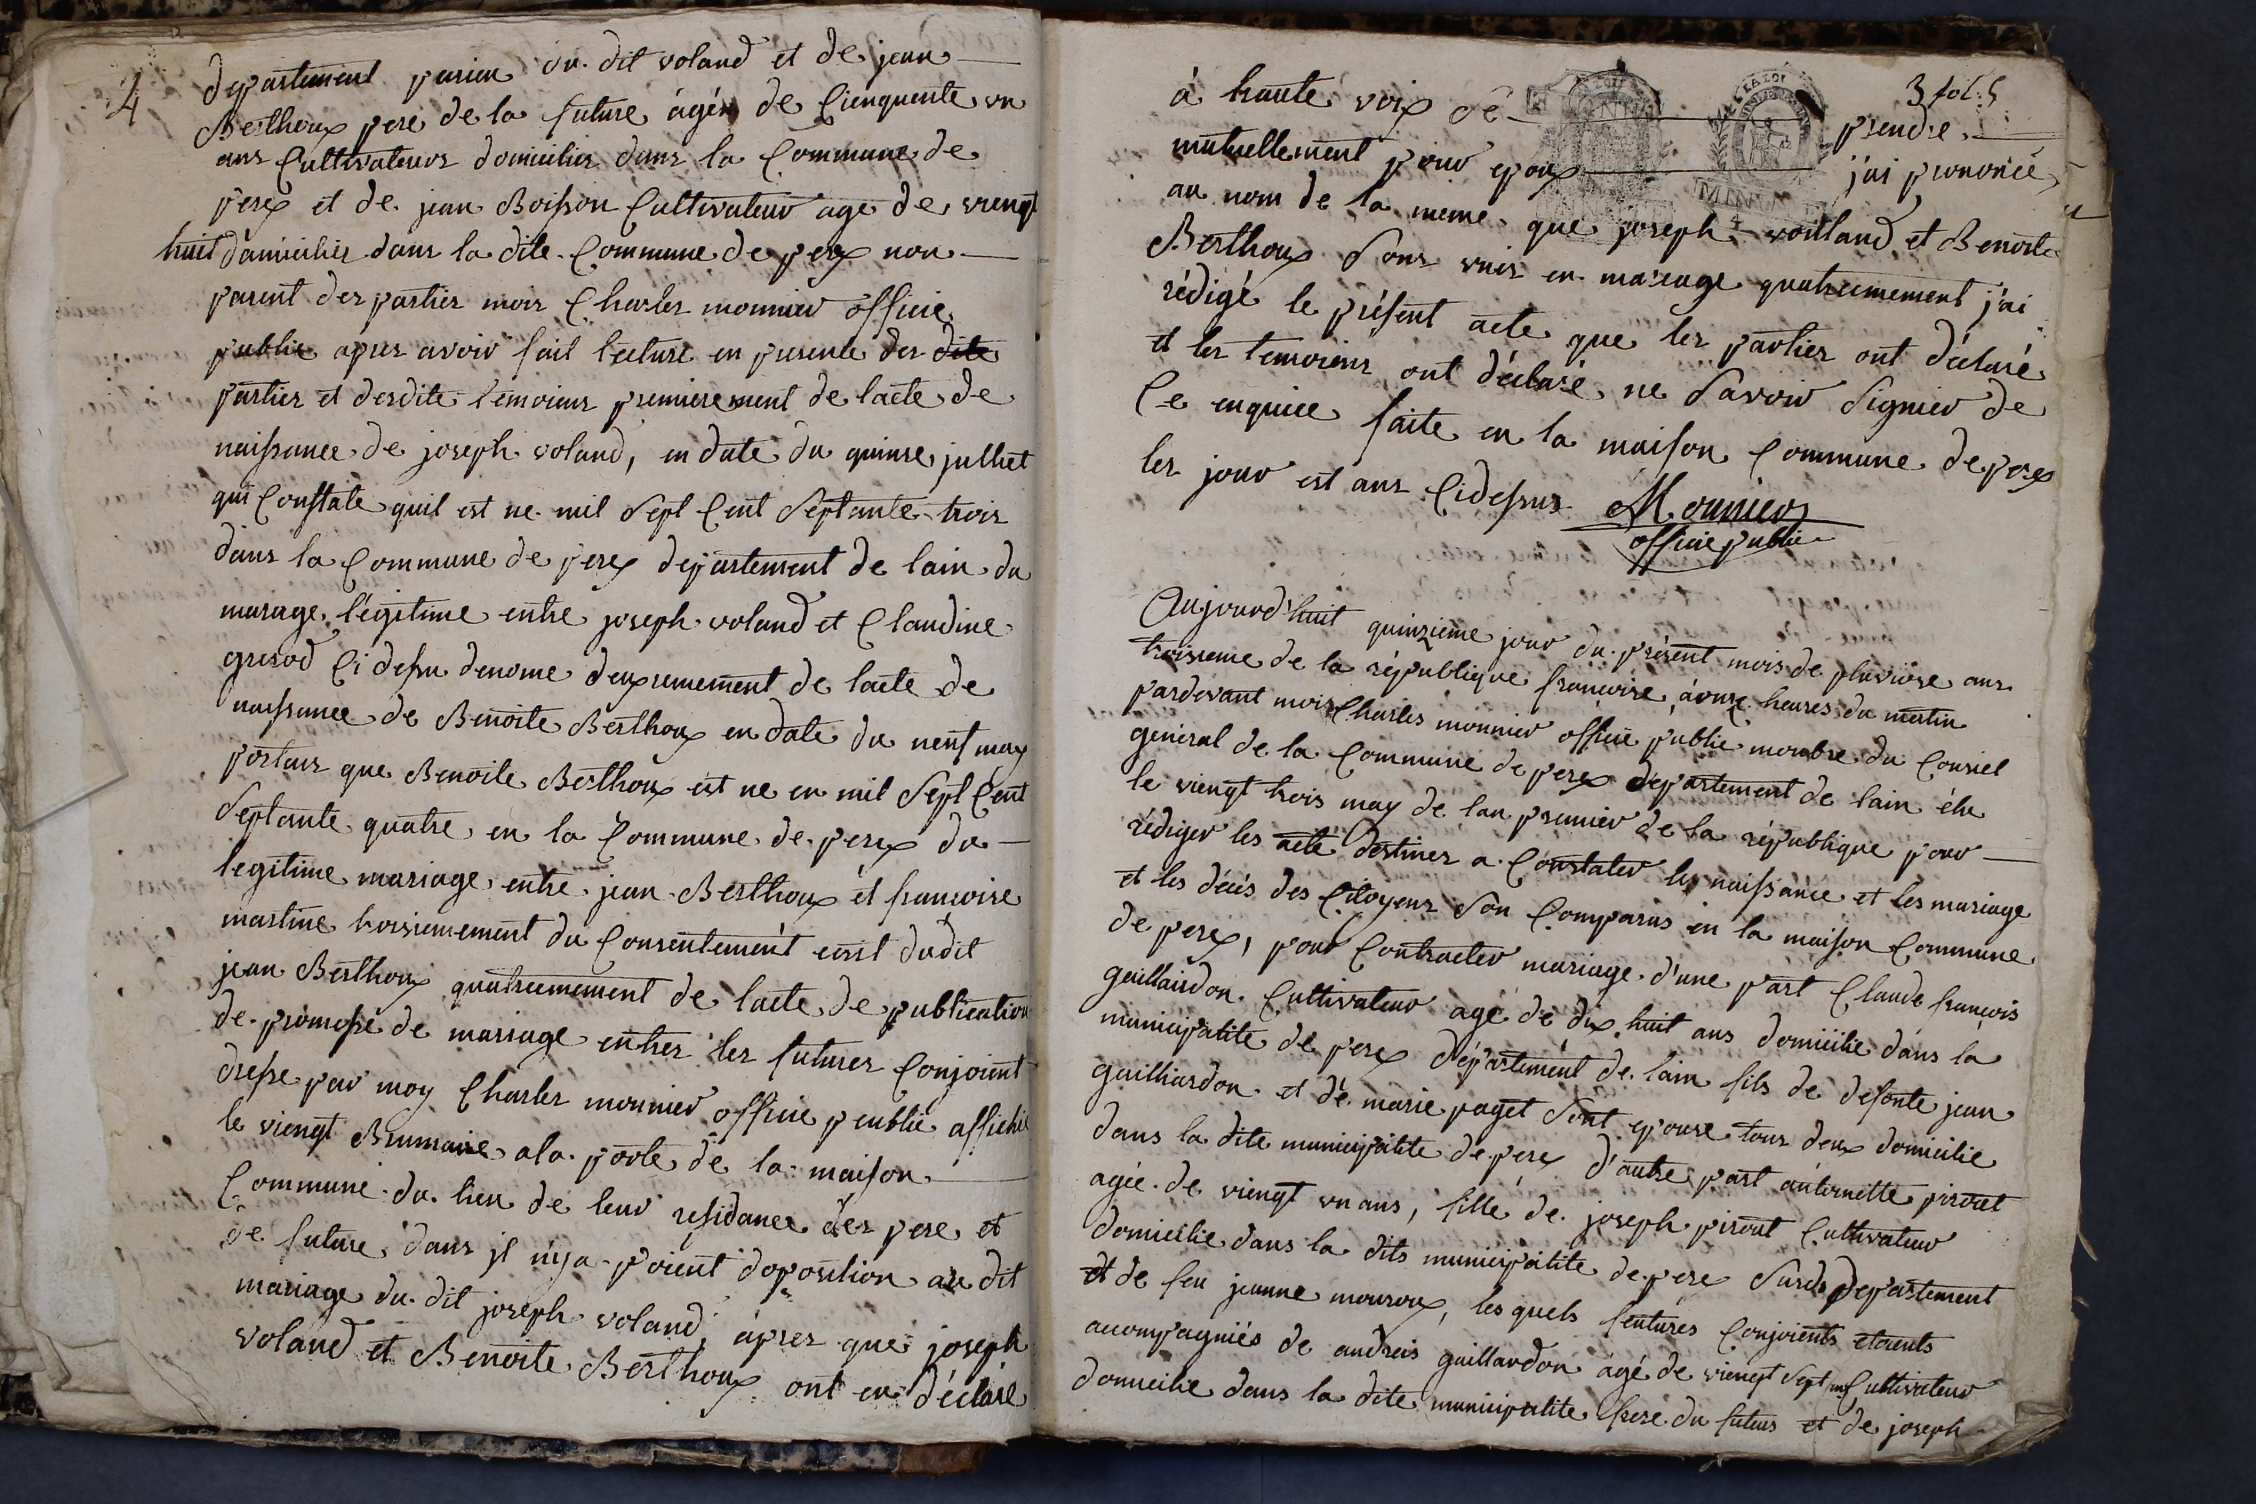 4
departement parien du dit voland et de jean
Berthoux pere de la future agée de Cienquente un
ans Cultivateurs domicilier dans la Commune de
perex et de jean Boisson Cultivateur age de viengt
huit domicilier dans la dite Commune de perex non
parent des partier moir Charler monnier officie
public apres avoir fait lecture en presente der dite
partier et desdite temoiens premierement de lacte de
naissance de joseph voland, en date du quinse julliet
qui Constate quil est ne mil sept Cent septante trois
dans la Commune de perex departement de lain du
mariage legitime entre joseph voland et Claudine
gresod Ci dessu denome deuxiemement de lacte de
naissance de Benoite Berthoux en date du neuf may
portans que Benoite Berthoux est ne en mil sept Cent
septante quatre en la Commune de perex du
legitime mariage entre jean Berthoux et francoise
martine troisiemement du Consentement ecrit dudit
jean Berthoux quatriemement de lacte de publication
de promesse de mariage entrer ler futurer Conjoient
dresse par moy Charler monnier officie peublic affichie
le viengt Brumaire a la porte de la maison
Commune du lieu de leur residance der pere et
de future dans jl niya poient doposition au dit
mariage du dit joseph voland, apres que joseph
voland et Benoite Berthoux ont eu declare
3 fol. 5
à haute voix de prendre
mutuellement pour epoux j'ai prononcé
au nom de la meme que joseph voilland et Benoite
Berthoux sons unis en mariage quatriemement j'ai
rédigé le présent acte que les partier ont déclaré
et les temoiens ont déclaré ne savoir signier de
Ce enquiee faite en la maison Commune de perex
les jour est ans Cidessus Monnier
officie public
Aujourd'huit quinzieme jour du présent mois de pluviôse ans
troisieme de la république francoise, a onze heures du matin
pardevant mois Charles monnier officie public membre du Consiel
general de la Commune de perex departement de lain élu
le viengt trois may de lan premier de la république pour
rédiger les acte destiner a Constater les naissance et les mariage
et les décès des Citoyens son Comparus en la maison Commune
de perex, pour Contracter mariage d'une part Claude françois
guillardon Cultivateur agé de dix huit ans domicilie dans la
municipatite de perex departement de lain fils de defonte jean
guilliardon et de marie paget sont epouse tous deux domicilie
dans la dite municipatite de perex d'autre part antoinette pirout
agée de viengt un ans, fille de joseph pirout Cultivateur
domicilie dans la dits municipatite de perex surdi departement
et de feu jeanne mouroux, les quels feutures Conjoients etoients
accompagniés de andreis guillardon agé de viengt sept ans Cultivateur
domicilie dans la dite municipatite frere du futurs et de joseph